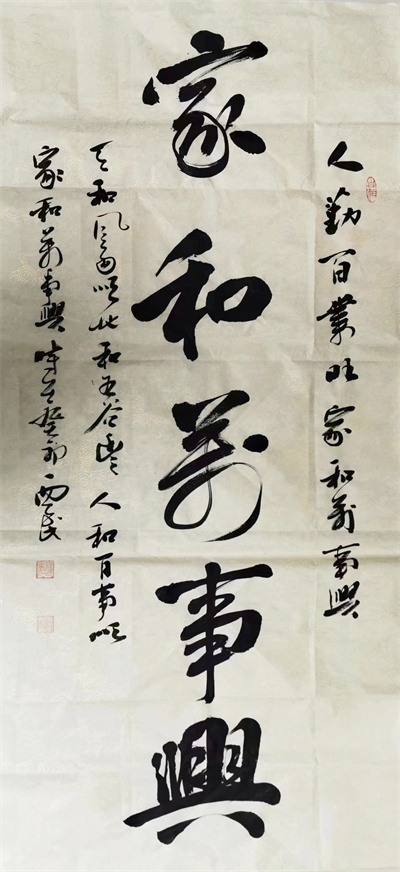 人勤百業旺家和萬事興
家和萬事興
天和風雨順地和五谷豐人和百事順
家和萬事興時在癸卯西民